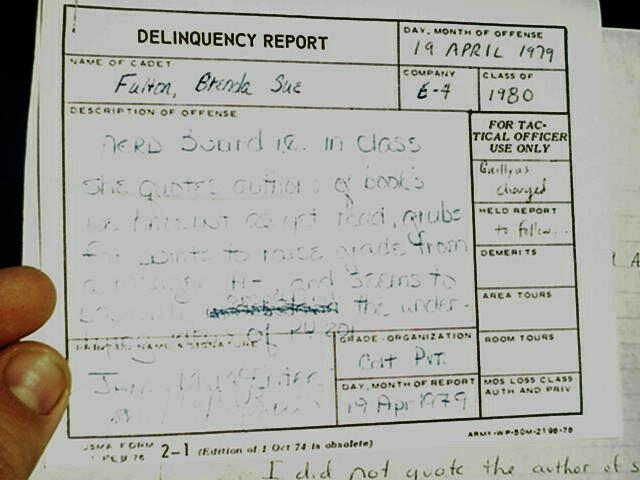 DELINQUENCY REPORT
DAY, MONTH OF OFFENSE
19 APRIL 1979
NAME OF CADET
Fulton, Brenda Sue
COMPANY
E-4
CLASS OF
1980
DESCRIPTION OF OFFENSE
NERD Board i.e. in class
she quotes authors of books
we haven't as yet read, grubs
for points to raise grade from
a A- and seems to
the under-
of
FOR TAC-
TICAL OFFICER
USE ONLY
Guilty as
charged
HELD REPORT
to follow...
DEMERITS
AREA TOURS
ROOM TOURS
MOS LOSS CLASS
AUTH AND PRIV
NAME & SIGNATURE
GRADE-ORGANIZATION
Cdt Pvt.
DAY, MONTH OF REPORT
19 Apr 1979
USMA FORM
1 FEB 76
2-1 (Edition of 1 Oct 74 is obsolete)
ARMY-WP-50M-2196-76
I did not quote the author of s